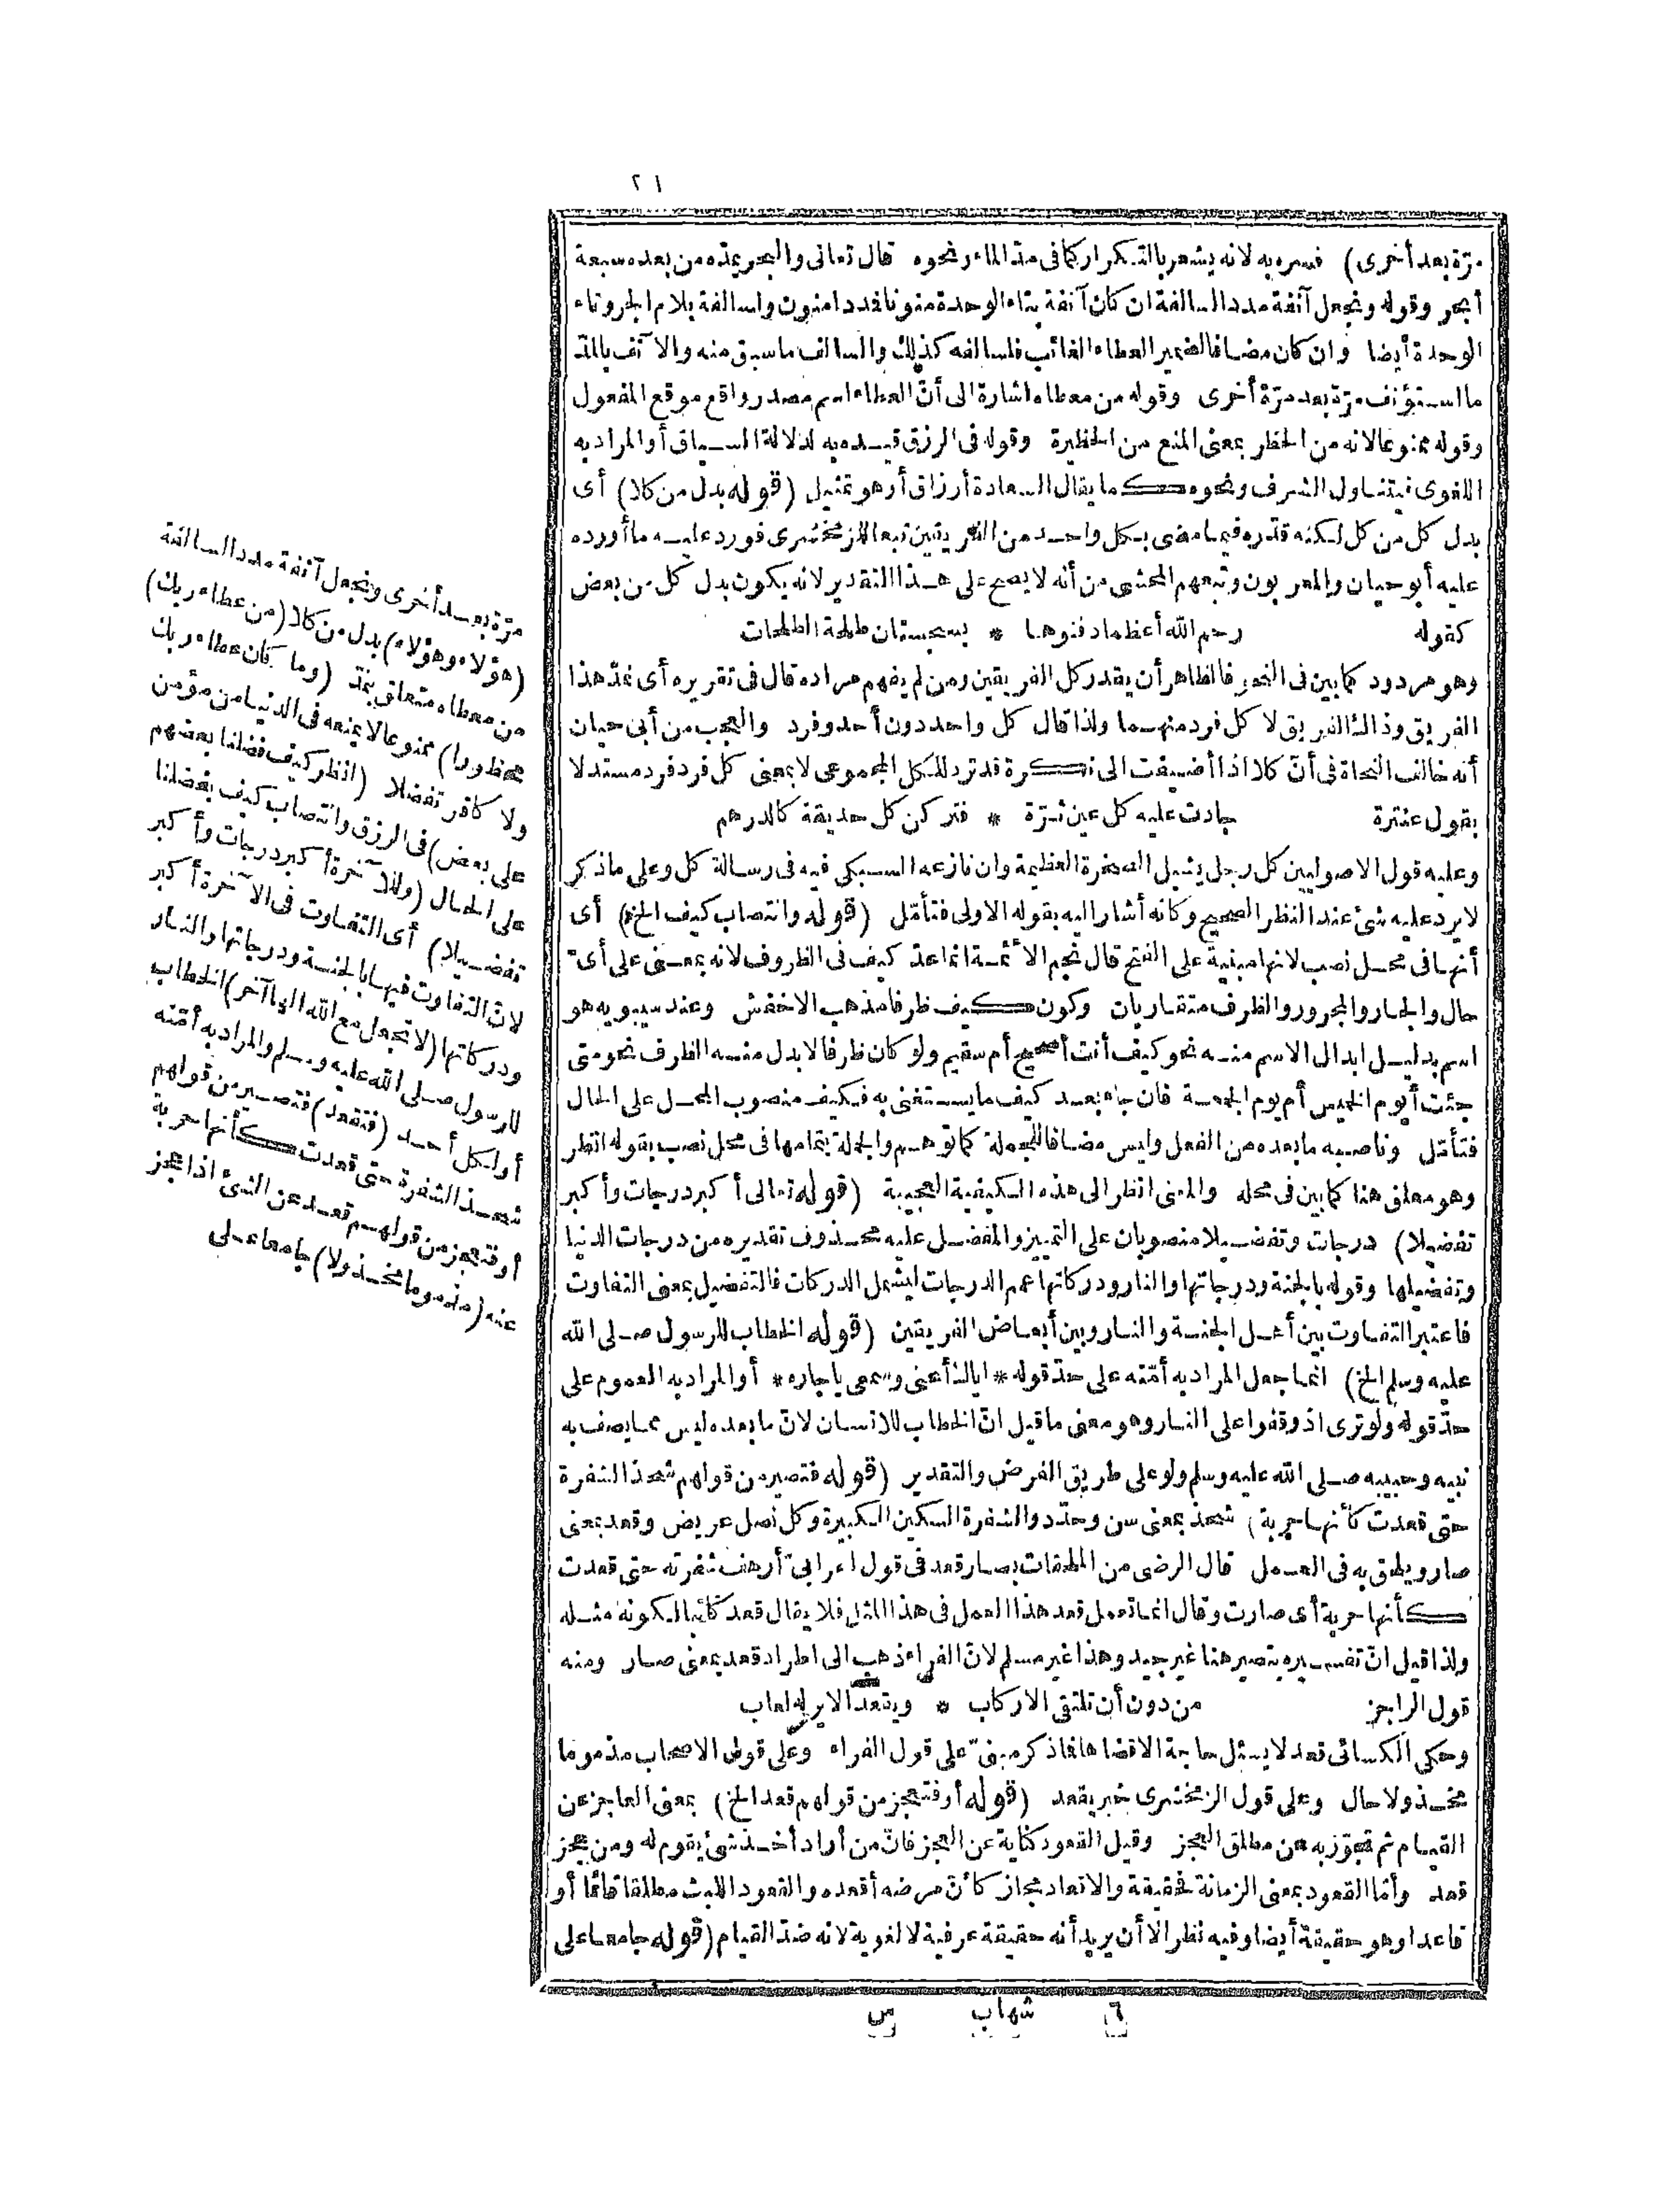 ٢١
مرّة بعد أخرى) فسره به لانه يشعر بالتكرار كما فى مدّ الماء ونحوه قال تعالى والبحر يمدّه من بعده سبعة
أبحر وقوله ونجعل آنفة مدد السالفة ان كان آنفة بتاء الوحدة منونا فمددا منون ولسالفة بلام الجر وتاء
الوحدة أيضا وان كان مضافا لضمير العطاء الغائب فلسالفه كذلك والسالف ما سبق منه والآنف بالمدّ
ما استؤنف مرّة بعد مرّة أخرى وقوله من معطاه اشارة الى أنّ العطاء اسم مصدر واقع موقع المفعول
وقوله ممنوعا لانه من الحظر بمعنى المنع من الحظيرة وقوله فى الرزق قيده به لدلالة السياق أو المراد به
اللغوى فيتناول الشرف ونحوه كما يقال السعادة أرزاق أو هو تمثيل (قوله بدل من كلا) أى
بدل كل من كل لكنه قدّره فيما مضى بكل واحد من الفريقين تبعا للزمخشرى فورد عليه ما أورده
عليه أبو حيان والمعربون وتبعهم المحشى من أنه لا يصح على هذا التقدير لانه يكون بدل كل من بعض
كقوله رحم الله أعظما دفنوها * بسجستان طلحة الطلحات
وهو مردود كما بين فى النحو فالظاهر أن يقدر كل الفريقين ومن لم يفهم مراده قال فى تقريره أى نمدّ هذا
الفريق وذالك الفريق لا كل فرد منهما ولذا قال كل واحد دون أحد وفرد والعجب من أبى حيان
أنه خالف النحاة فى أنّ كلا اذا أضيفت الى نكرة قد ترد للكل المجموعى لا بمعنى كل فرد فرد مستدلا
بقول عنترة جادت عليه كل عين ثرّة * فتركن كل حديقة كالدرهم
وعليه قول الاصوليين كل رجل يشيل الصخرة العظيمة وان نازعه السبكى فيه فى رسالة كل وعلى ما ذكر
لا يرد عليه شئ عند النظر الصحيح وكانه أشار اليه بقوله الاولى فتأمّل (قوله وانتصاب كيف الخ) أى
أنها فى محل نصب لانها مبنية على الفتح قال نجم الائمة انما عدّ كيف فى الظروف لانه بمعنى على أىّ
حال والجار والمجرور والظرف متقاربان وكون كيف ظرفا مذهب الاخفش وعند سيبويه هو
اسم بدليل ابدال الاسم منه نحو كيف أنت أصحيح أم سقيم ولو كان ظرفا لابدل منه الظرف نحو متى
جئت أيوم الخميس أم يوم الجمعة فان جاء بعد كيف ما يستغنى به فكيف منصوب المحل على الحال
فتأمّل وناصبه ما بعده من الفعل وليس مضافا للجملة كما توهم والجملة بتمامها فى محل نصب بقوله انظر
وهو معلق هنا كما بين فى محله والمعنى انظر الى هذه الكيفية العجيبة (قوله تعالى أكبر درجات وأكبر
تفضيلا) درجات وتفضيلا منصوبان على التمييز والمفضل عليه محذوف تقديره من درجات الدنيا
وتفضيلها وقوله بالجنة ودرجاتها والنار ودركاتها عمم الدرجات ليشمل الدركات فالتفضيل بمعنى التفاوت
فاعتبر التفاوت بين أهل الجنة والنار وبين أبعاض الفريقين (قوله الخطاب للرسول صلى الله
عليه وسلم الخ) انما جعل المراد به أمّته على حدّ قوله * اياك أعنى واسمعى يا جاره * أو المراد به العموم على
حدّ قوله ولو ترى اذ وقفوا على النار وهو معنى ما قيل انّ الخطاب للانسان لانّ ما بعده ليس مما يصف به
نبيه وحبيبه صلى الله عليه وسلم ولو على طريق الفرض والتقدير (قوله فتصير من قولهم شحذ الشفرة
حتى قعدت كأنها حربة) شحذ بمعنى سن وحدّد والشفرة السكين الكبيرة وكل نصل عريض وقعد بمعنى
صار ويلحق به فى العمل قال الرضى من الملحقات بصار قعد فى قول اعرابىّ أرهف شفرته حتى قعدت
كأنها حربة أى صارت وقال انما تعمل قعد هذا العمل فى هذا المثل فلا يقال قعد كاتبا لكونه مثله
ولذا قيل انّ تفسيره بتصير هنا غير جيد وهذا غير مسلم لانّ الفراء ذهب الى اطراد قعد بمعنى صار ومنه
قول الراجز من دون أن تلتقى الاركاب * ويقعد الاير له لعاب
وحكى الكسائى قعد لا يسئل حاجة الا قضاها فما ذكر مبنىّ على قول الفراء وعلى قول الاصحاب مذموما
مخذولا حال وعلى قول الزمخشرى خبر يقعد (قوله أو فتعجز من قولهم قعد الخ) بمعنى العاجز عن
القيام ثم تجوّز به عن مطلق العجز وقيل القعود كناية عن العجز فانّ من أراد أخذ شئ يقوم له ومن عجز
قعد وأمّا القعود بمعنى الزمانة فحقيقة والاقعاد مجاز كأنّ مرضه أقعده والقعود اللبث مطلقا قائما أو
قاعدا وهو حقيقة أيضا وفيه نظر الّا أن يريد أنه حقيقة عرفية لا لغوية لانه ضدّ القيام (قوله جامعا على
٦ شهاب س
مرّة بعد أخرى ونجعل آنفة مدد السالفة
(هؤلاء وهؤلاء) بدل من كلا (من عطاء ربك)
من معطاه متعلق بنمدّ (وما كان عطاء ربك
محظورا) ممنوعا لا يمنعه فى الدنيا من مؤمن
ولا كافر تفضلا (انظر كيف فضلنا بعضهم
على بعض) فى الرزق وانتصاب كيف بفضلنا
على الحال (وللآخرة أكبر درجات وأكبر
تفضيلا) أى التفاوت فى الآخرة أكبر
لانّ التفاوت فيها بالجنة ودرجاتها والنار
ودركاتها (لا تجعل مع الله الها آخر) الخطاب
للرسول صلى الله عليه وسلم والمراد به أمّته
أو لكل أحد (فتقعد) فتصير من قولهم
شحذ الشفرة حتى قعدت كأنها حربة
أو فتعجز من قولهم قعد عن الشئ اذا عجز
عنه (مذموما مخذولا) جامعا على